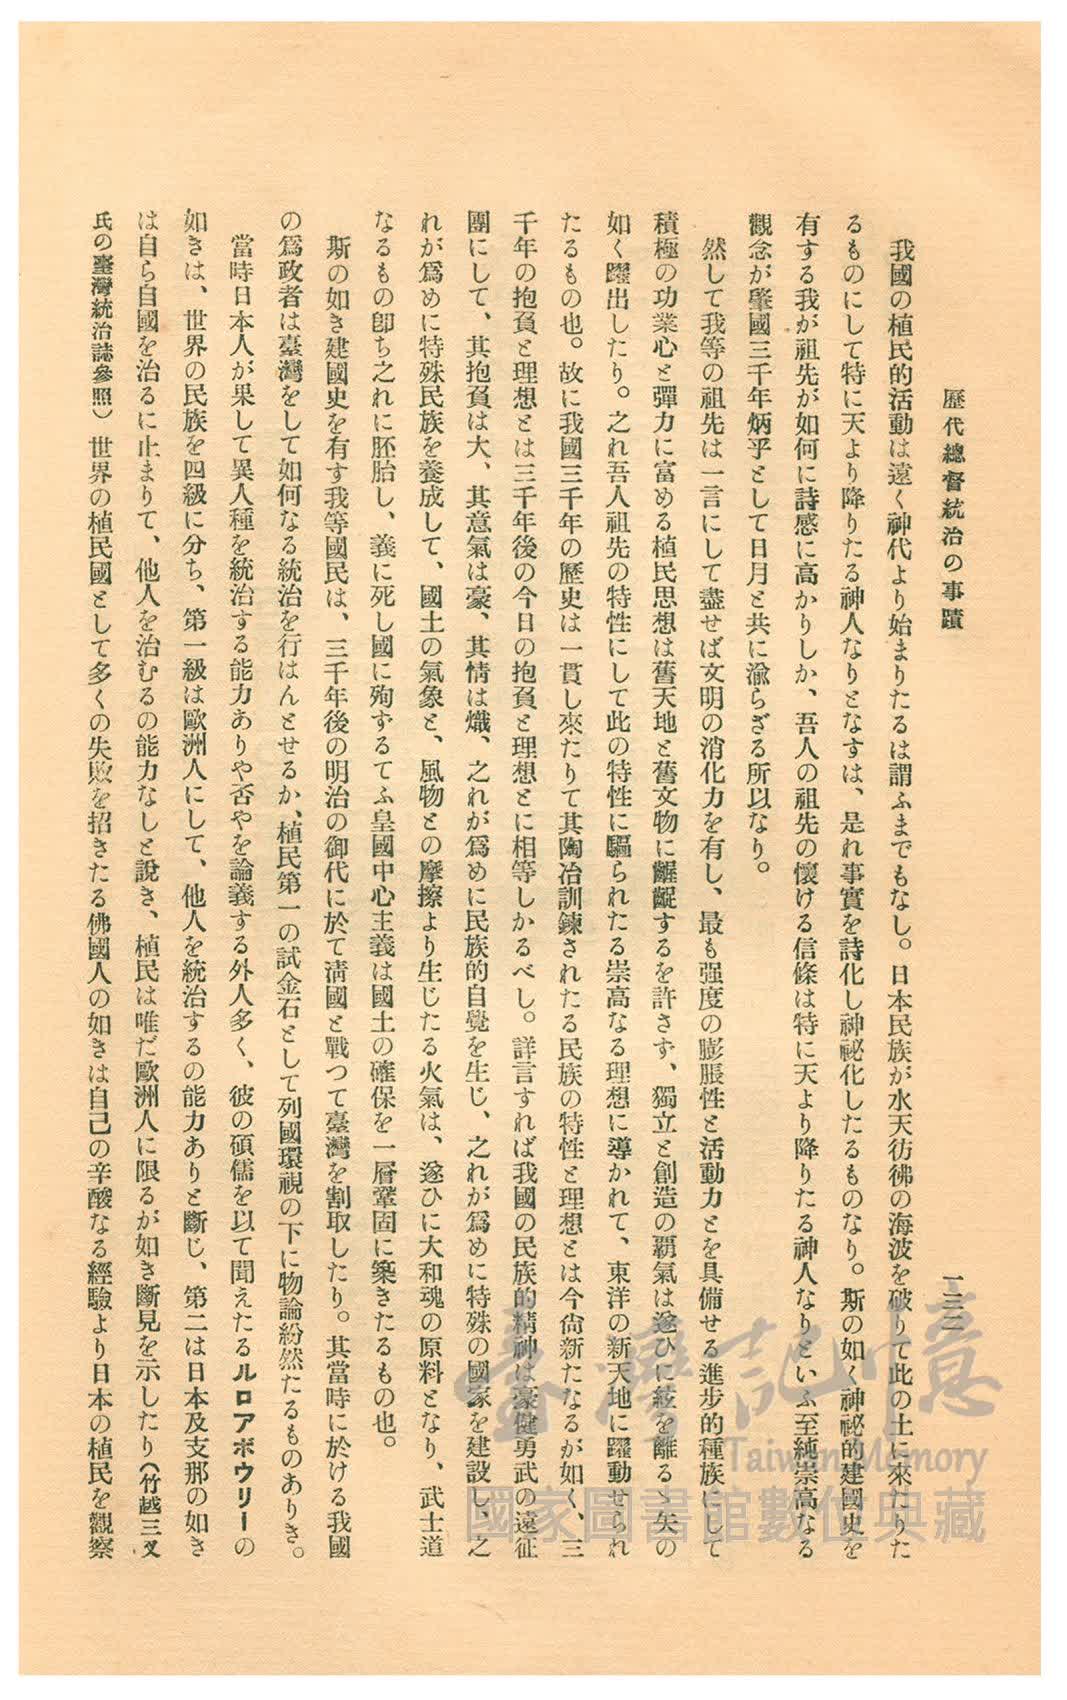 歷代總督統治の事蹟
一三二
我國の植民的活動は遠く神代より始まりたるは謂ふまでもなし。日本民族が水天彷彿の海波を破りて此の土に來たりた
るものにして特に天より降りたる神人なりとなすは、是れ事實を詩化し神祕化したるものなり。斯の如く神祕的建國史を
有する我が祖先が如何に詩感に高かりしか、吾人の祖先の懷ける信條は特に天より降りたる神人なりといふ至純崇高なる
觀念が肇國三千年炳乎として日月と共に渝らざる所以なり。
然して我等の祖先は一言にして盡せば文明の消化力を有し、最も强度の膨脹性と活動力とを具備せる進步的種族にして
積極の功業心と彈力に富める植民思想は舊天地と舊文物に齷齪するを許さず、獨立と創造の覇氣は遂ひに絃を離るゝ矢の
如く躍出したり。之れ吾人祖先の特性にして此の特性に驅られたる崇高なる理想に導かれて、東洋の新天地に躍動せられ
たるもの也。故に我國三千年の歷史は一貫し來たりて其陶冶訓鍊されたる民族の特性と理想とは今尙新たなるが如く、三
千年の抱負と理想とは三千年後の今日の抱負と理想とに相等しかるべし。詳言すれば我國の民族的精神は豪健勇武の遠征
團にして、其抱負は大、其意氣は豪、其情は熾、之れが爲めに民族的自覺を生じ、之れが爲めに特殊の國家を建設し、之
れが爲めに特殊民族を養成して、國土の氣象と、風物との摩擦より生じたる火氣は、遂ひに大和魂の原料となり、武士道
なるもの卽ち之れに胚胎し、義に死し國に殉ずるてふ皇國中心主義は國土の確保を一層鞏固に築きたるもの也。
斯の如き建國史を有す我等國民は、三千年後の明治の御代に於て淸國と戰つて臺灣を割取したり。其當時に於ける我國
の爲政者は臺灣をして如何なる統治を行はんとせるか、植民第一の試金石として列國環視の下に物論紛然たるものありき。
當時日本人が果して異人種を統治する能力ありや否やを論義する外人多く、彼の碩儒を以て聞えたるルロアボウリーの
如きは、世界の民族を四級に分ち、第一級は歐洲人にして、他人を統治するの能力ありと斷じ、第二は日本及支那の如き
は自ら自國を治るに止まりて、他人を治むるの能力なしと說き、植民は唯だ歐洲人に限るが如き斷見を示したり（竹越三叉
氏の臺灣統治誌參照）世界の植民國として多くの失敗を招きたる佛國人の如きは自己の辛酸なる經驗より日本の植民を觀察
臺灣記憶
Taiwan Memory
國家圖書館數位典藏